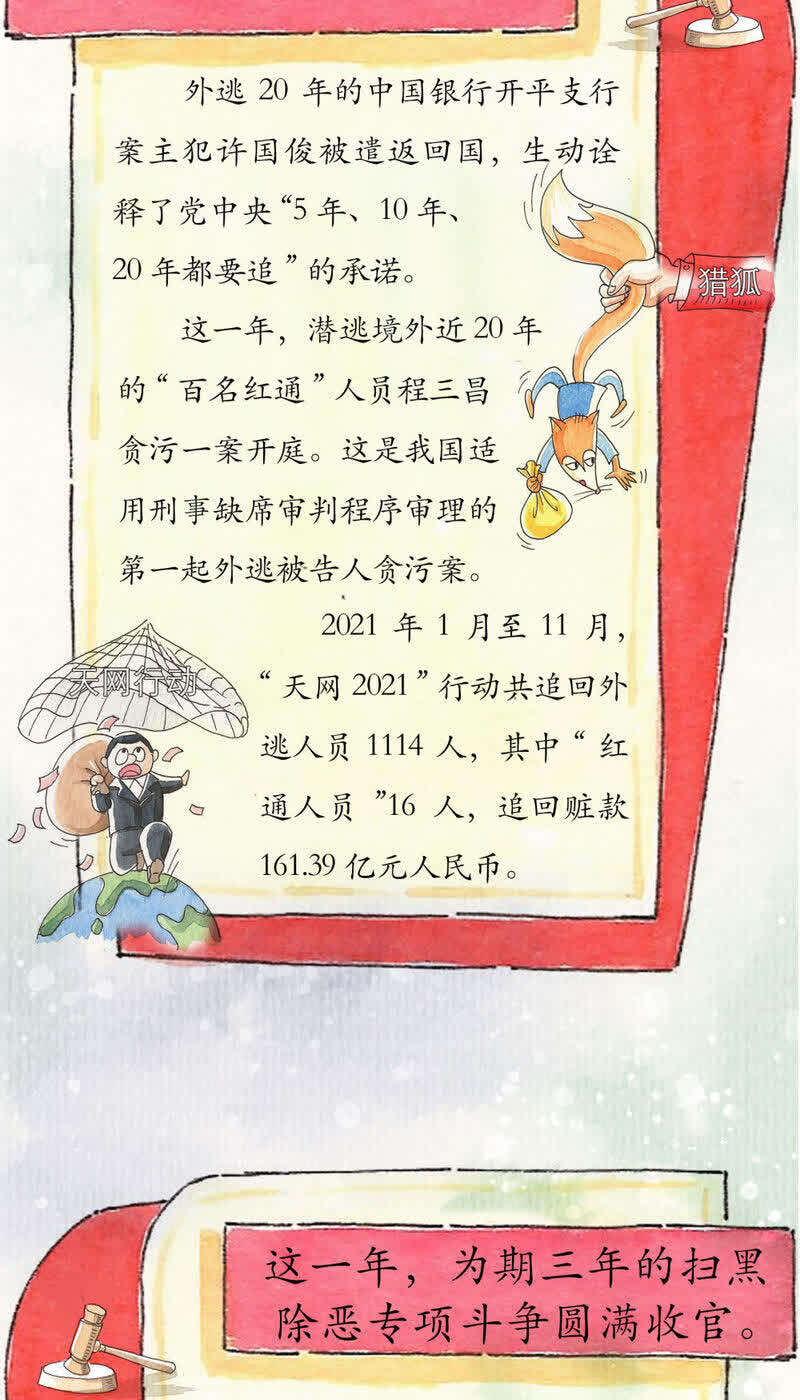 外逃 20 年的中国银行开平支行
案主犯许国俊被遣返回国，生动诠
释了党中央“5 年、10 年、
20 年都要追”的承诺。
猎狐
这一年，潜逃境外近 20 年
的“百名红通”人员程三昌
贪污一案开庭。这是我国适
用刑事缺席审判程序审理的
第一起外逃被告人贪污案。
2021 年 1 月至 11 月，
“天网 2021”行动共追回外
逃人员 1114 人，其中“红
通人员”16 人，追回赃款
161.39 亿元人民币。
天网行动
这一年，为期三年的扫黑
除恶专项斗争圆满收官。